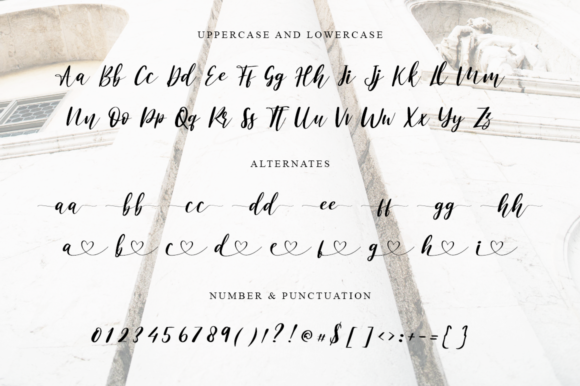 UPPERCASE AND LOWERCASE
Aa Bb Cc Dd Ee Ff Gg Hh Ii Jj Kk Ll Mm
Nn Oo Pp Qq Rr Ss Tt Uu Vv Ww Xx Yy Zz
ALTERNATES
aa bb cc dd ee ff gg hh
a♡ b♡ c♡ d♡ e♡ f♡ g♡ h♡ i♡
NUMBER & PUNCTUATION
0123456789()!?!@"$[]<>:+-={}